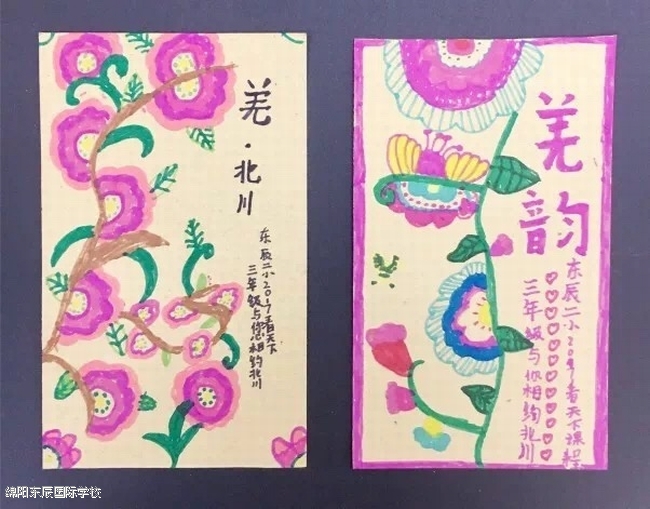 羌·北川
东辰二小2019看天下
三年级与你相约北川
羌韵
东辰二小2019看天下课程
三年级与你相约北川
绵阳东辰国际学校